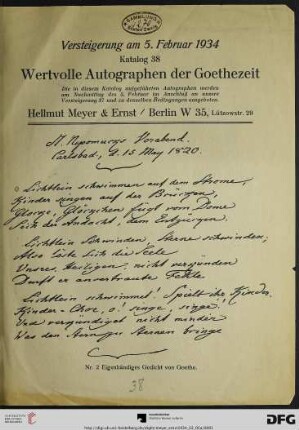 Versteigerung am 5. Februar 1934
Katalog 38
Wertvolle Autographen der Goethezeit
Die in diesem Katalog aufgeführten Autographen werden
am Nachmittag des 5. Februar im Anschluß an unsere
Versteigerung 37 und zu denselben Bedingungen ausgeboten.
Hellmut Meyer & Ernst / Berlin W 35, Lützowstr. 29
St. Nepomucks Vorabend.
Carlsbad, d. 15 May 1820.
Lichtlein schwimmen auf dem Strome,
Kinder singen auf der Brücken,
Glocke, Glöckchen fügt vom Dome
Sich der Andacht, dem Entzücken.
Lichtlein schwinden, Sterne schwinden;
Also löste sich die Seele
Unsres Heiligen, nicht verkünden
Durft er anvertraute Fehle.
Lichtlein schwimmet! Spielt ihr Kinder,
Kinder-Chor, o! singe, singe!
Und verkündiget nicht minder
Was den Stern zu Sternen bringe
Nr. 2 Eigenhändiges Gedicht von Goethe.
38
DFG